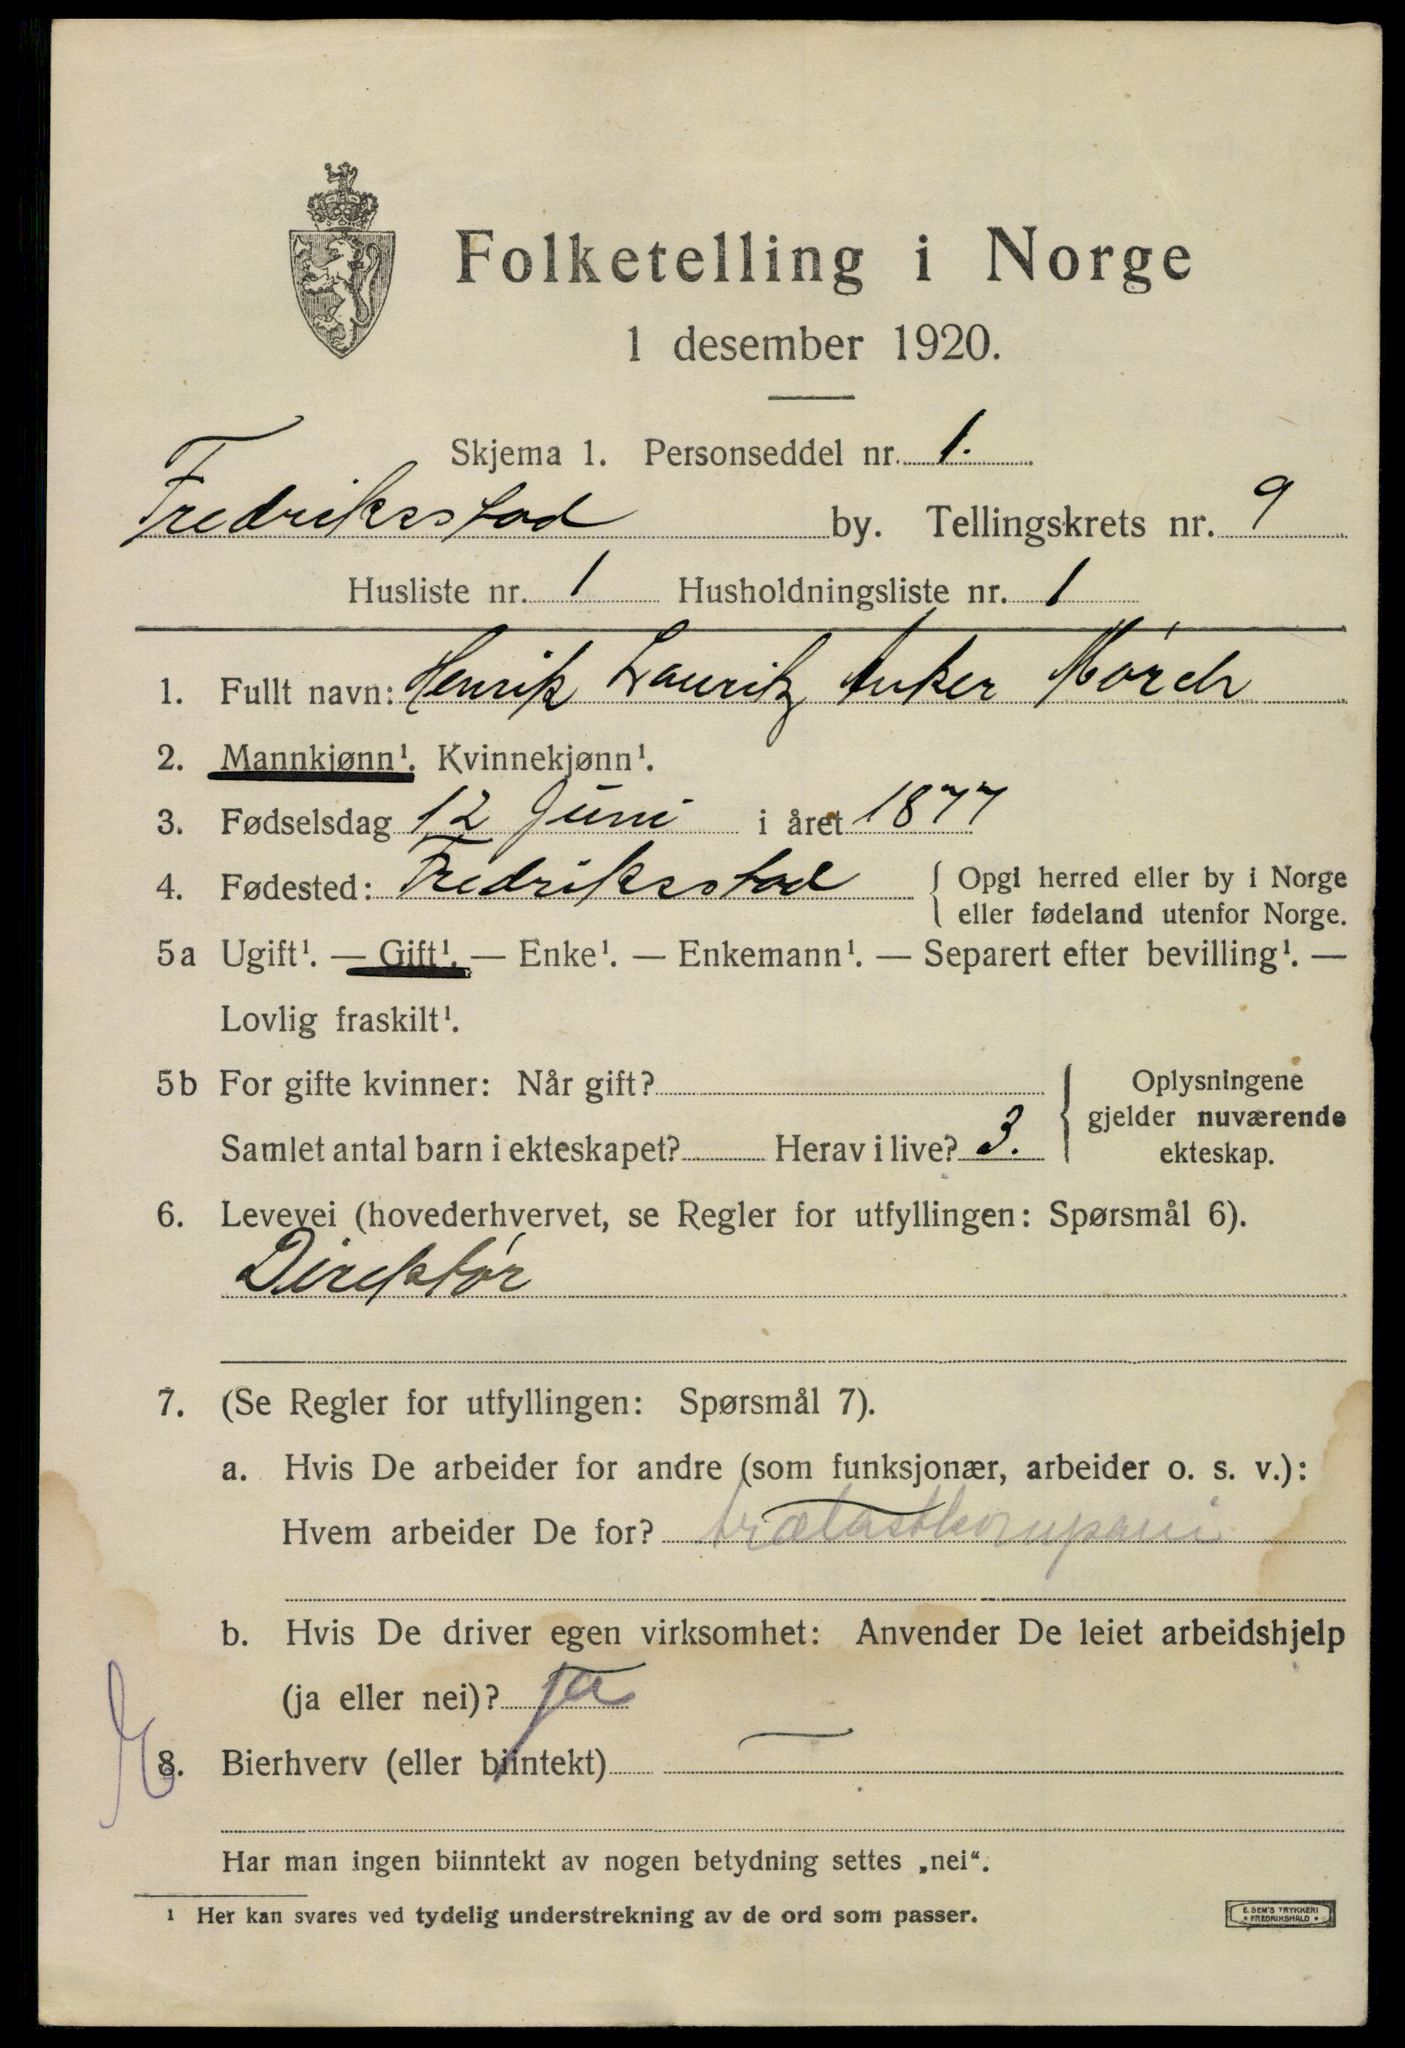 Folketelling i Norge
1 desember 1920.
Skjema 1. Personseddel nr. 1.
Fredriksstad by. Tellingskrets nr. 9
Husliste nr. 1 Husholdningsliste nr. 1
1. Fullt navn: Henrik Lauritz Anker Mørch
2. Mannkjønn¹. Kvinnekjønn¹.
3. Fødselsdag 12 Juni i året 1877
4. Fødested: Fredriksstad { Opgi herred eller by i Norge
eller fødeland utenfor Norge.
5a Ugift¹. — Gift¹. — Enke¹. — Enkemann¹. — Separert efter bevilling¹. —
Lovlig fraskilt¹.
5b For gifte kvinner: Når gift? { Oplysningene
gjelder nuværende
Samlet antal barn i ekteskapet? Herav i live? 3. ekteskap.
6. Levevei (hovederhvervet, se Regler for utfyllingen: Spørsmål 6).
Direktør
7. (Se Regler for utfyllingen: Spørsmål 7).
a. Hvis De arbeider for andre (som funksjonær, arbeider o. s. v.):
Hvem arbeider De for? trælastkompani
b. Hvis De driver egen virksomhet: Anvender De leiet arbeidshjelp
(ja eller nei)? ja
8. Bierhverv (eller biintekt) —
Har man ingen biinntekt av nogen betydning settes „nei“.
¹ Her kan svares ved tydelig understrekning av de ord som passer.
E. SEM'S TRYKKERI
• FREDRIKSHALD •